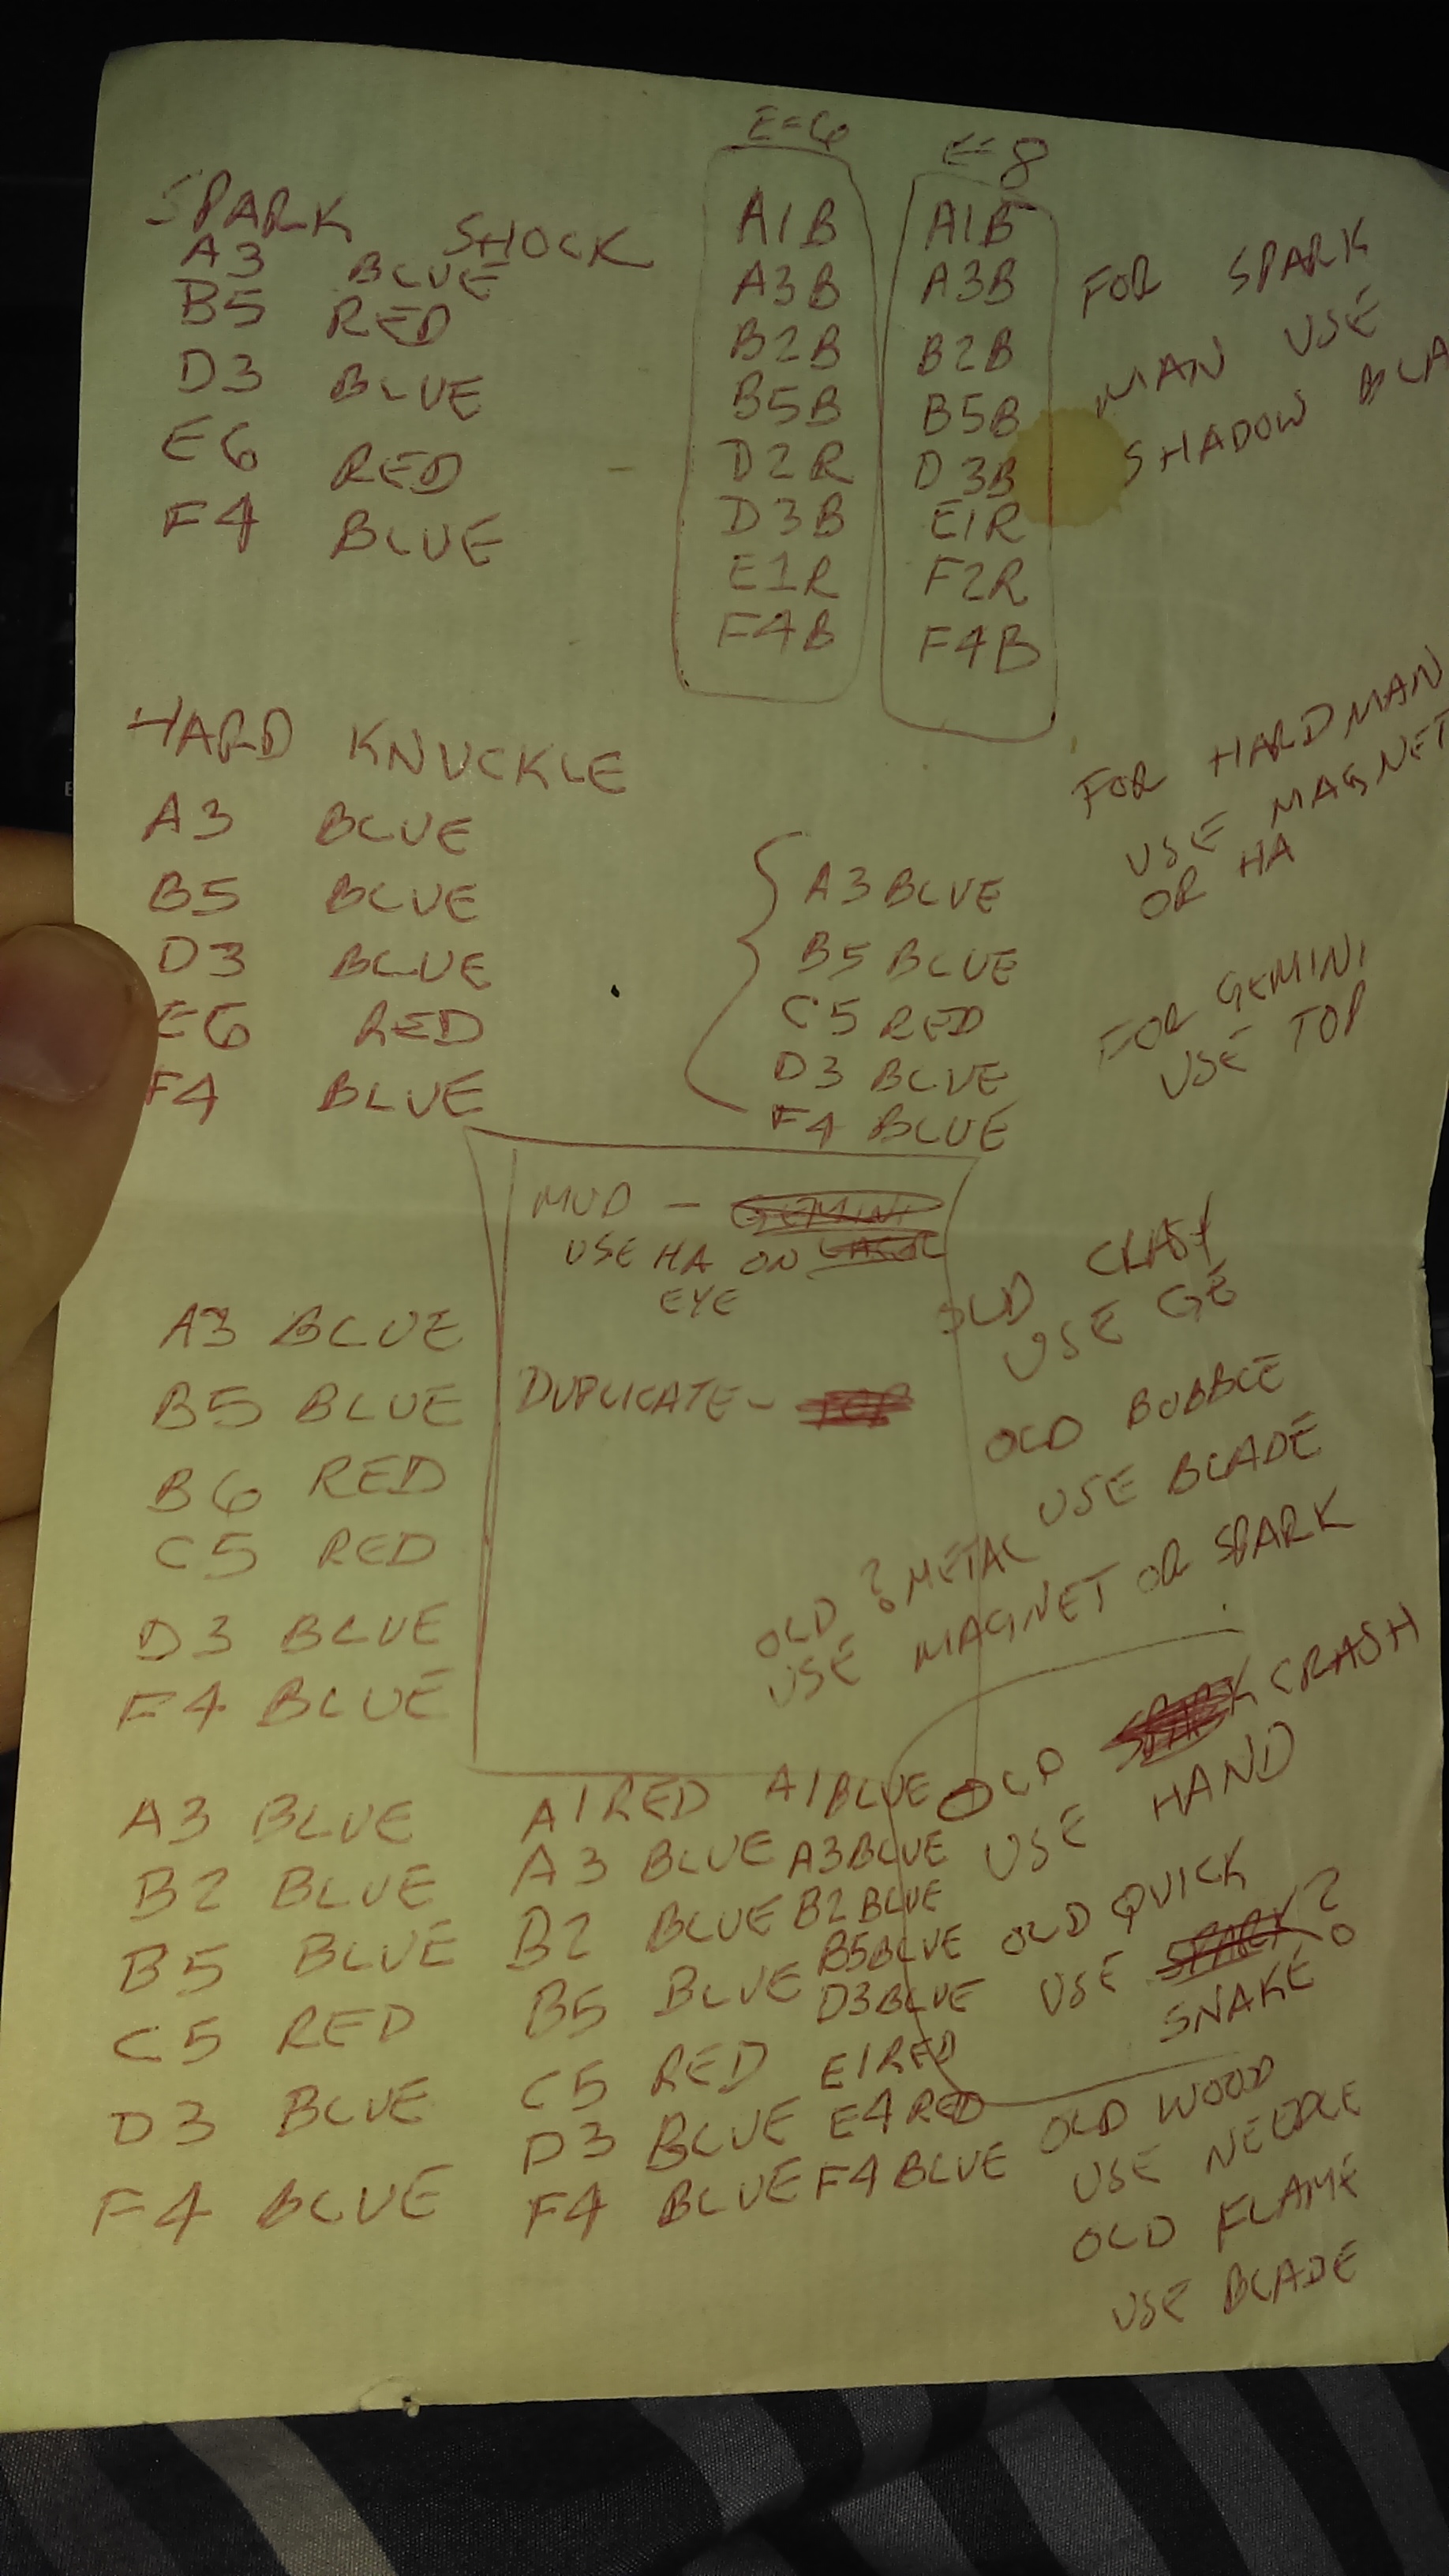 SPARK SHOCK
A3 BLUE
B5 RED
D3 BLUE
E6 RED
F4 BLUE
E=6
A1B
A3B
B2B
B5B
D2R
D3B
E1R
F4B
E=8
A1B
A3B
B2B
B5B
D3B
E1R
F2R
F4B
FOR SPARK
MAN USE
SHADOW BLA
HARD KNUCKLE
A3 BLUE
B5 BLUE
D3 BLUE
E6 RED
F4 BLUE
A3 BLUE
B5 BLUE
C5 RED
D3 BLUE
F4 BLUE
FOR HARDMAN
USE MAGNET
OR HA
FOR GEMINI
USE TOP
MUD - GEMINI
USE HA ON LASER
EYE
DUPLICATE - TOP
A3 BLUE
B5 BLUE
B6 RED
C5 RED
D3 BLUE
F4 BLUE
OLD CLASH
USE GE
OLD BUBBLE
USE BLADE
OLD ? METAL
USE MAGNET OR SPARK
OLD SPARK CRASH
USE HAND
OLD QUICK
USE SPARK?
SNAKE
OLD WOOD
USE NEEDLE
OLD FLAME
USE BLADE
A3 BLUE
B2 BLUE
B5 BLUE
C5 RED
D3 BLUE
F4 BLUE
A1 RED
A3 BLUE
B2 BLUE
B5 BLUE
C5 RED
D3 BLUE
F4 BLUE
A1 BLUE
A3 BLUE
B2 BLUE
B5 BLUE
D3 BLUE
E1 RED
E4 RED
F4 BLUE